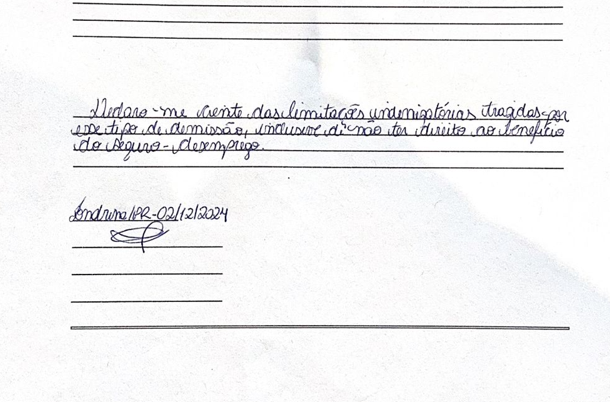 Declaro-me ciente das limitações indenizatórias tragidas por
esse tipo de demissão, inclusive de não ter direito ao benefício
do seguro-desemprego.
Londrina/PR-02/12/2024